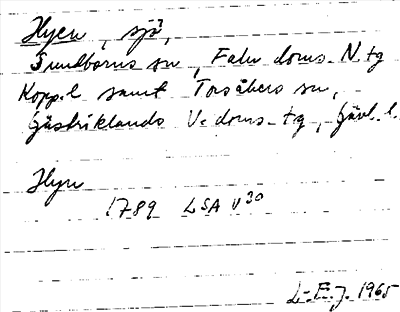 Hyen, sjö,
Sundborns sn, Falu doms. N. tg
Kopp. l samt Torsåkers sn,
Gästriklands V. doms-tg, Gävl. l.
Hyn
1789 LSA V30
L-E. J. 1965